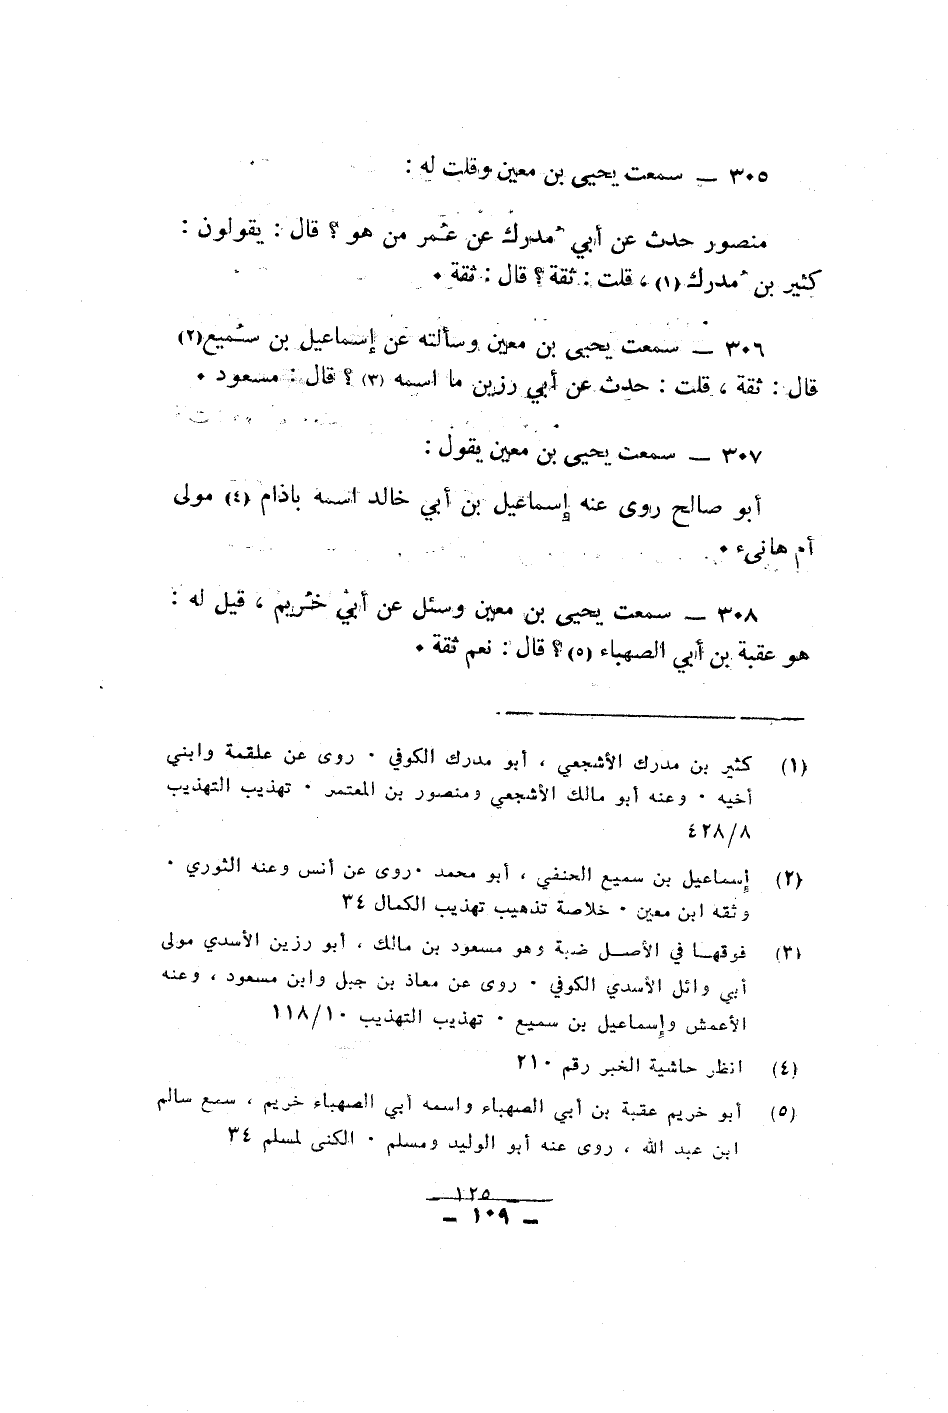 ٣٠٥ ــ سمعت يحيى بن معين وقلت له :
منصور حدث عن أبي مُدرك عن عُمر من هو ؟ قال : يقولون :
كثير بن مُدرك (١) ، قلت : ثقة ؟ قال : ثقة ٠
٣٠٦ ــ سمعت يحيى بن معين وسألته عن إسماعيل بن سُميع(٢)
قال : ثقة ، قلت : حدث عن أبي رزين ما اسمه (٣) ؟ قال : مسعود ٠
٣٠٧ ــ سمعت يحيى بن معين يقول :
أبو صالح روى عنه إسماعيل بن أبي خالد اسمه باذام (٤) مولى
أم هانىء ٠
٣٠٨ ــ سمعت يحيى بن معين وسئل عن أبي خُريم ، قيل له :
هو عقبة بن أبي الصهباء (٥) ؟ قال : نعم ثقة ٠
(١) كثير بن مدرك الأشجعي ، أبو مدرك الكوفي ٠ روى عن علقمة وابني
أخيه ٠ وعنه أبو مالك الأشجعي ومنصور بن المعتمر ٠ تهذيب التهذيب
٤٢٨/٨
(٢) إسماعيل بن سميع الحنفي ، أبو محمد ٠ روى عن أنس وعنه الثوري ٠
وثقه ابن معين ٠ خلاصة تذهيب تهذيب الكمال ٣٤
(٣) فوقهـا في الأصـل ضبة وهو مسعود بن مالك ، أبو رزين الأسدي مولى
أبي وائل الأسدي الكوفي ٠ روى عن معاذ بن جبل وابن مسعود ، وعنه
الأعمش وإسماعيل بن سميع ٠ تهذيب التهذيب ١١٨/١٠
(٤) انظر حاشية الخبر رقم ٢١٠
(٥) أبو خريم عقبة بن أبي الصهباء واسمه أبي الصهباء خريم ، سمع سالم
ابن عبد الله ، روى عنه أبو الوليد ومسلم ٠ الكنى لمسلم ٣٤
١٢٥
ــ ١٠٩ ــ